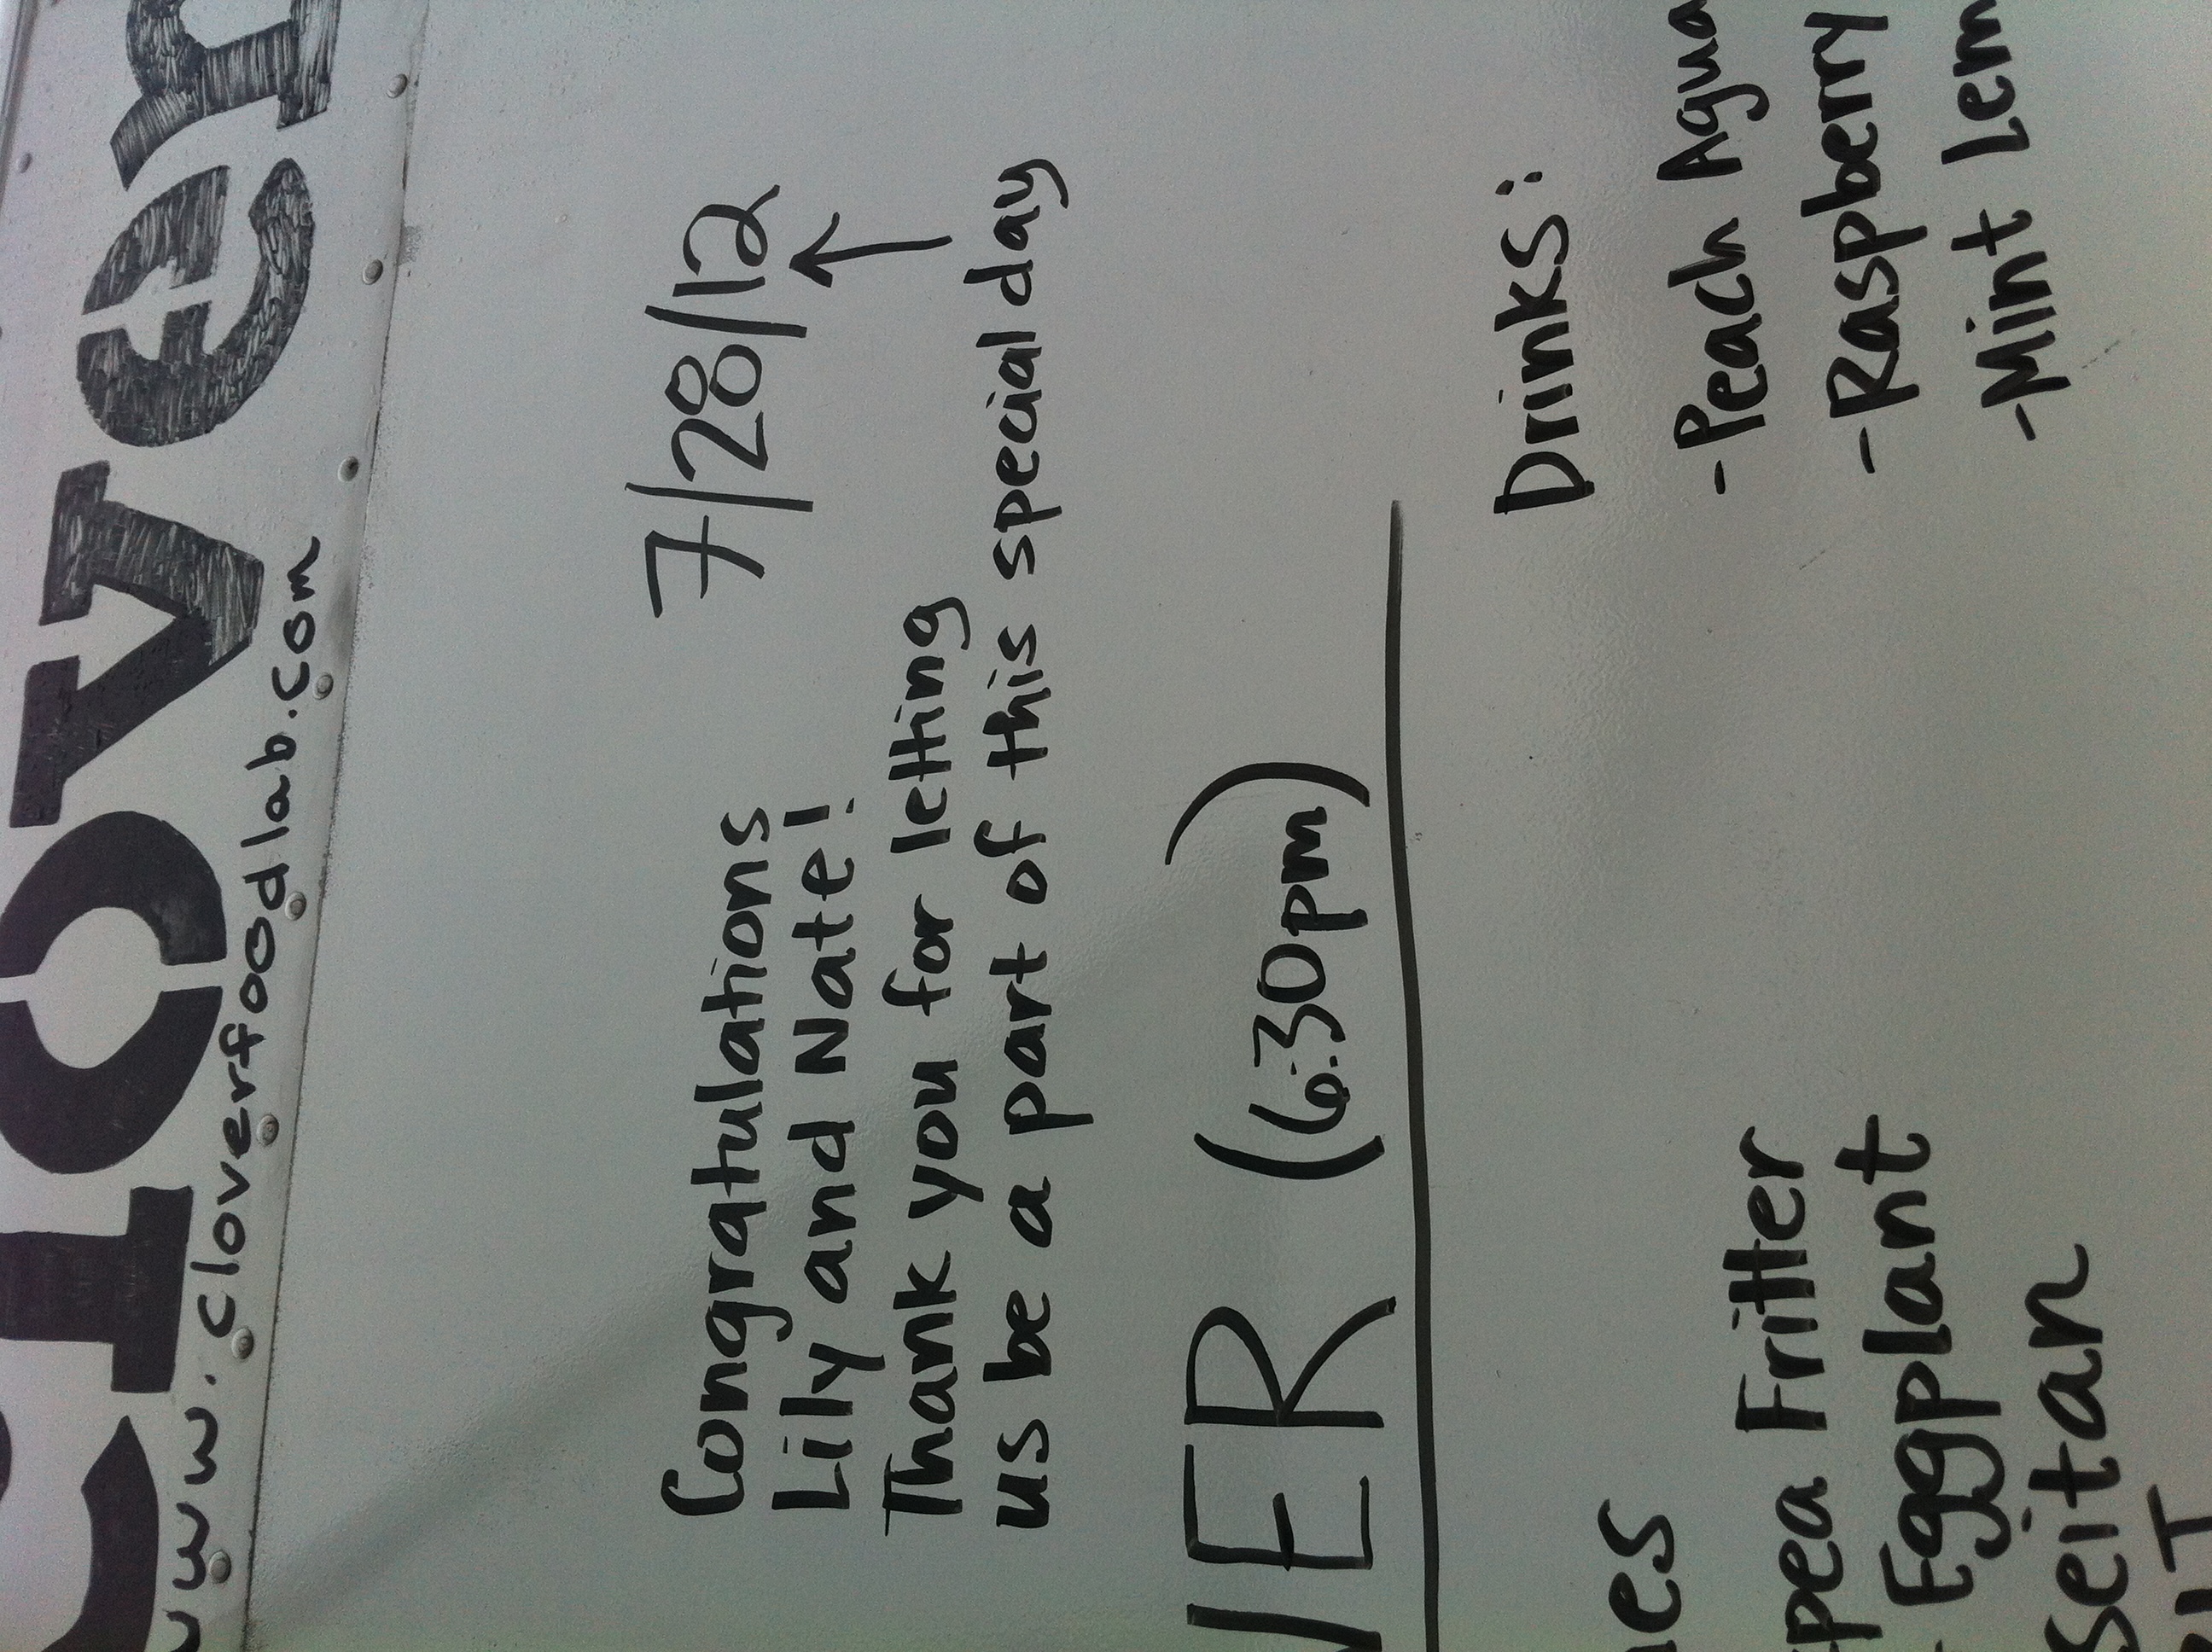 Clover
www.cloverfoodlab.com
7/28/12
Congratulations
Lily and Nate!
Thank you for letting
us be a part of this special day
(6:30pm)
Drinks:
-Peach Agua
-Raspberry
-Mint
pea Fritter
Eggplant
seitan